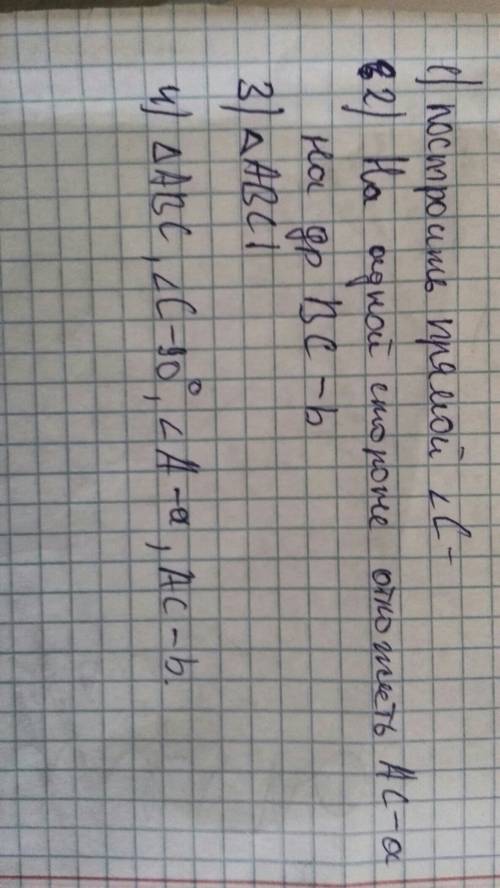 1) построить прямой ∠C -
2) На одной стороне отложить AC - a
на др BC - b
3) △ABC!
4) △ABC, ∠C - 90°, ∠A - α, AC - b.